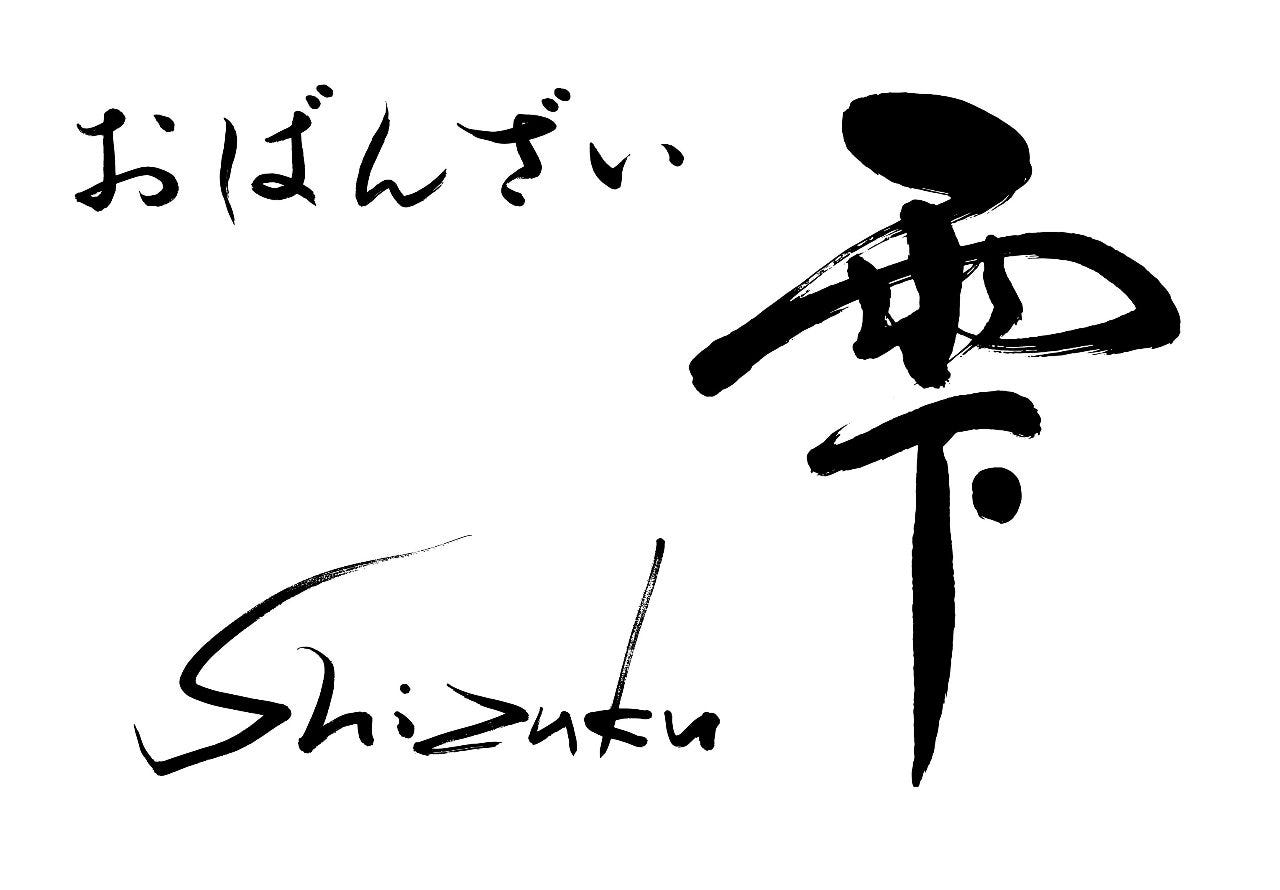 おばんざい
雫
Shizuku